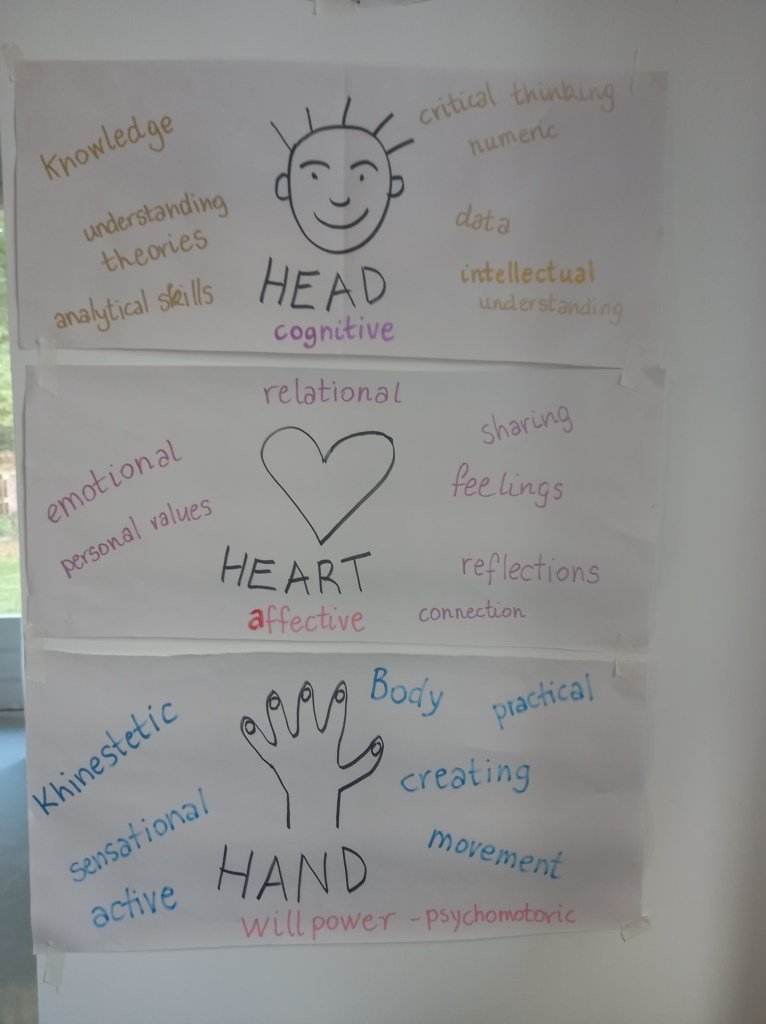 Knowledge
critical thinking
numeric
understanding
theories
data
analytical skills
intellectual
understanding
HEAD
cognitive
relational
sharing
emotional
feelings
personal values
HEART
reflections
affective
connection
Body
practical
Khinestetic
creating
sensational
movement
active
HAND
will power - psychomotoric